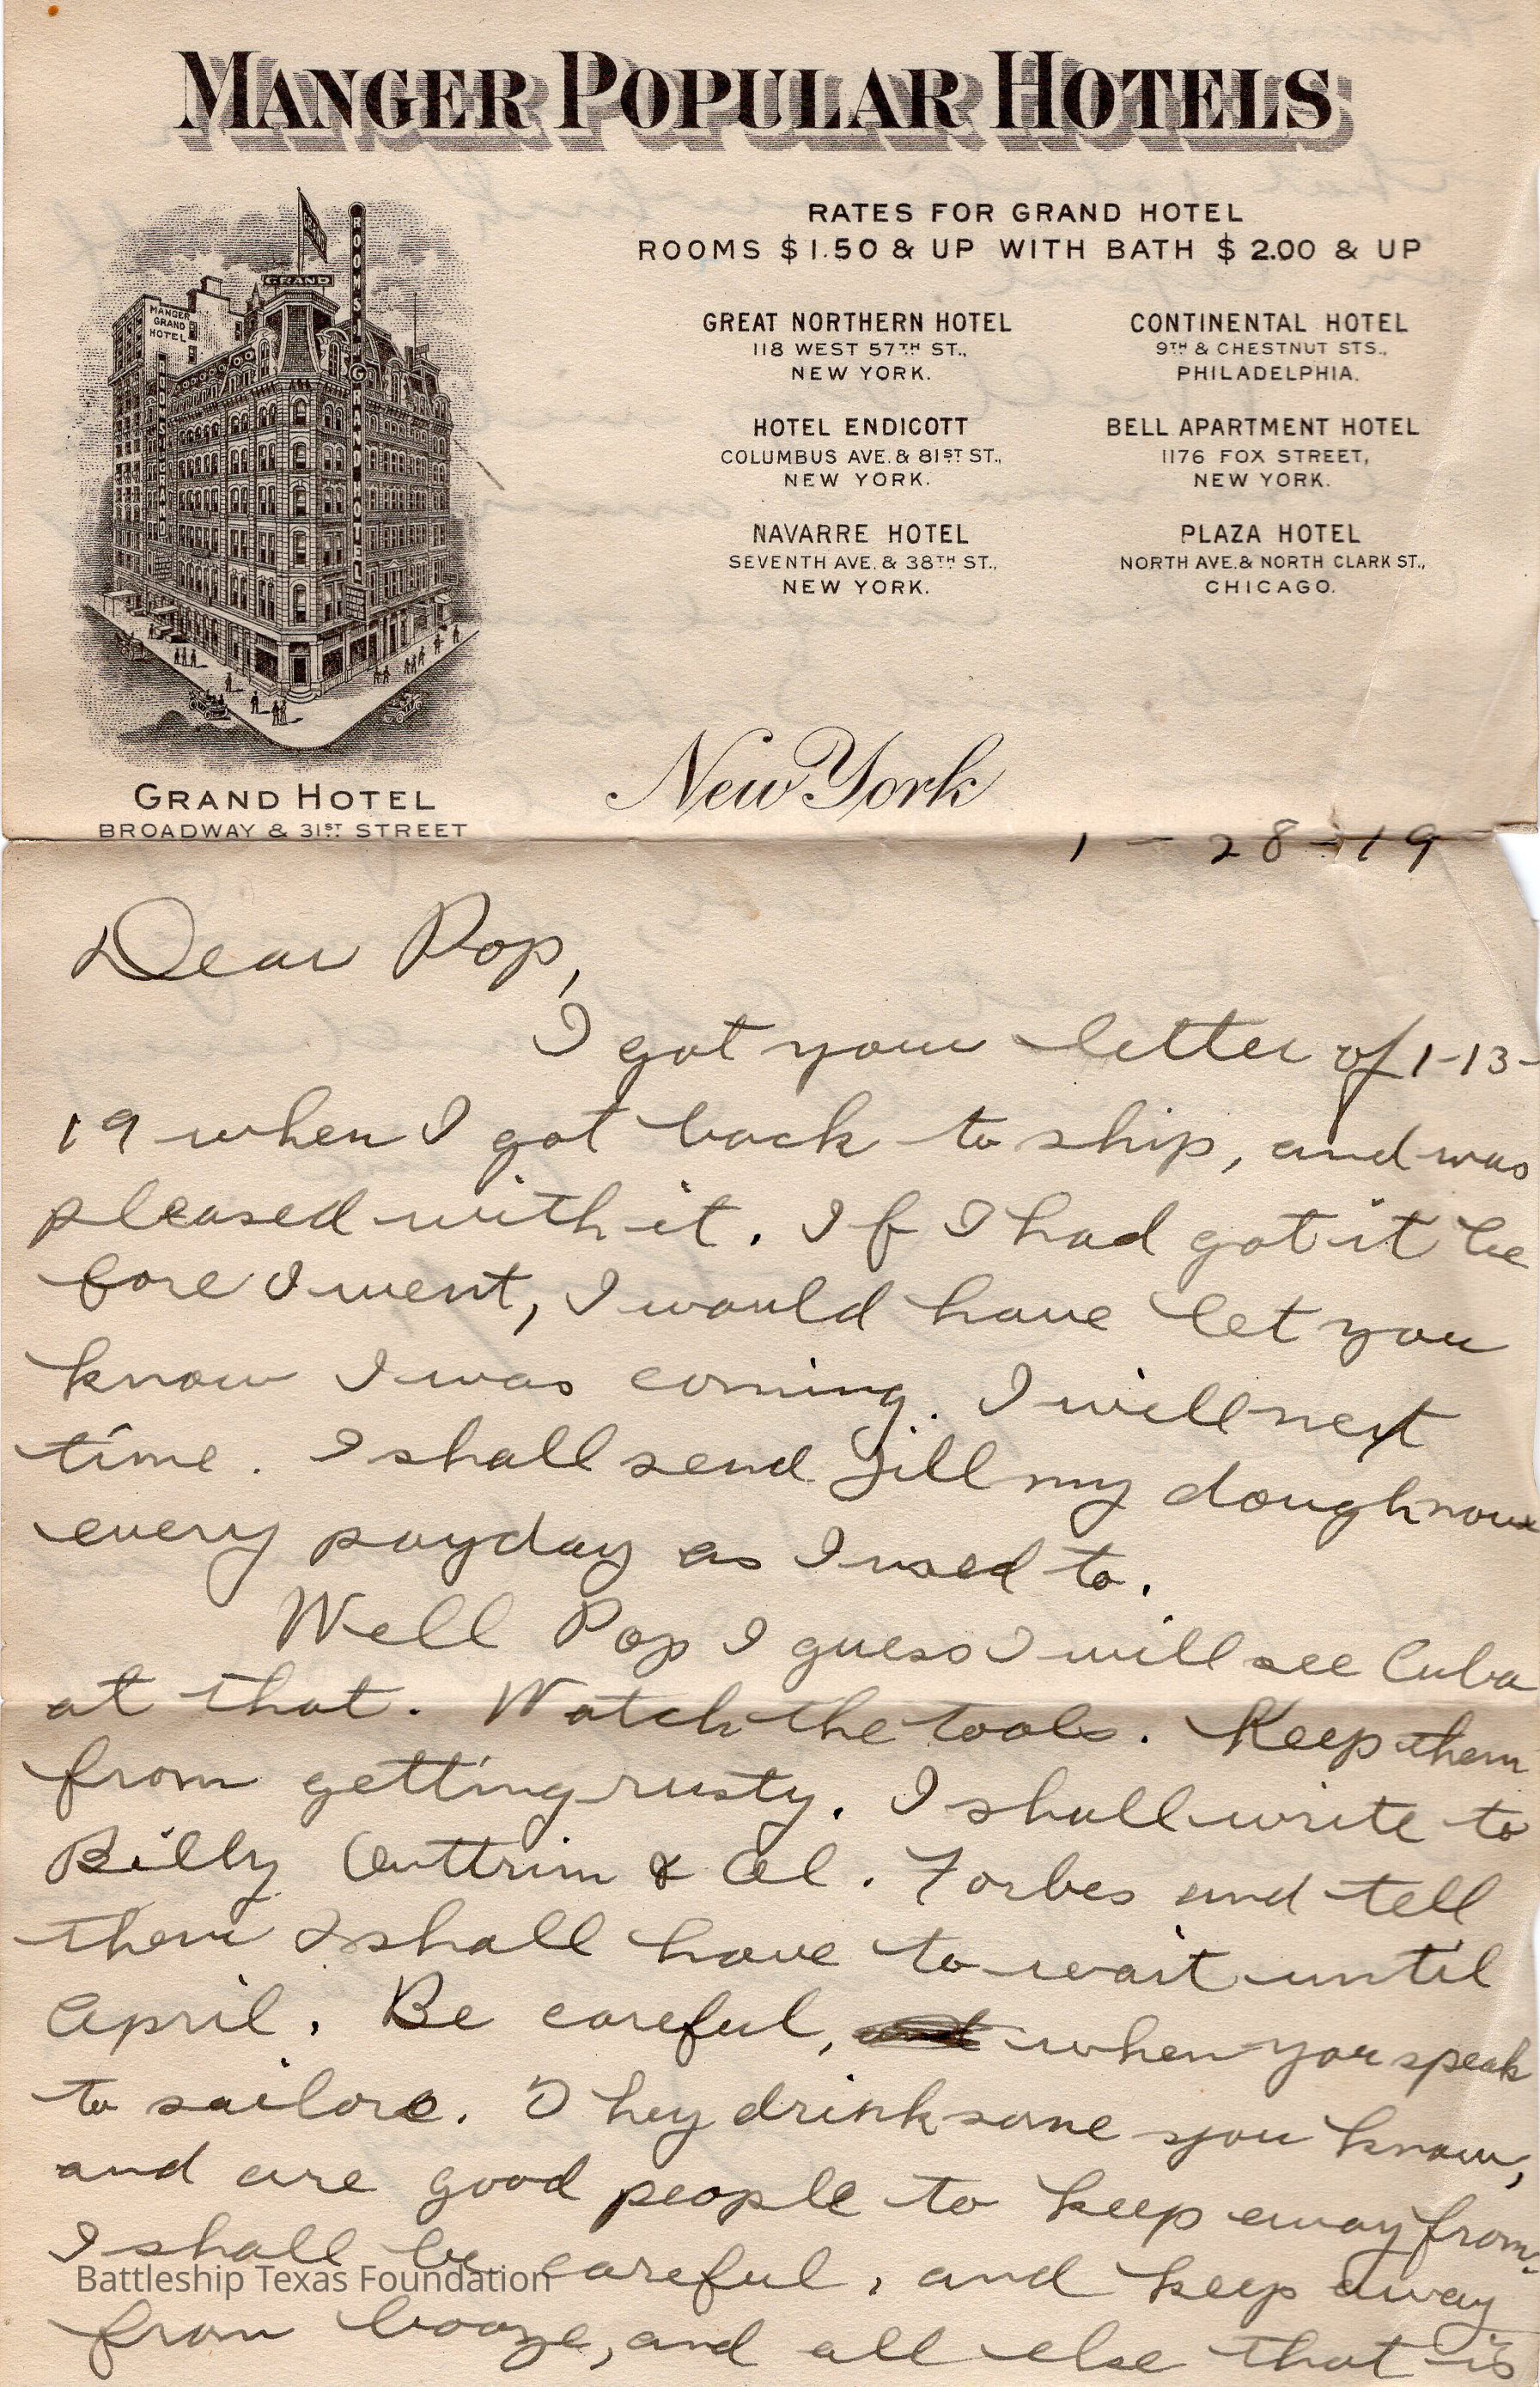 MANGER POPULAR HOTELS
RATES FOR GRAND HOTEL
ROOMS $1.50 & UP WITH BATH $2.00 & UP
GREAT NORTHERN HOTEL
118 WEST 57TH ST.,
NEW YORK.
CONTINENTAL HOTEL
9TH & CHESTNUT STS.,
PHILADELPHIA.
HOTEL ENDICOTT
COLUMBUS AVE. & 81ST ST.,
NEW YORK.
BELL APARTMENT HOTEL
1176 FOX STREET,
NEW YORK.
NAVARRE HOTEL
SEVENTH AVE. & 38TH ST.,
NEW YORK.
PLAZA HOTEL
NORTH AVE. & NORTH CLARK ST.,
CHICAGO.
GRAND
MANGER
GRAND
HOTEL
ROOMS GRAND HOTEL
GRAND HOTEL
BROADWAY & 31ST STREET
New York
1-28-19
Dear Pop,
I got your letter of 1-13-
19 when I got back to ship, and was
pleased with it. If I had got it be
fore I went, I would have let you
know I was coming. I will next
time. I shall send Jill my dough now
every payday as I used to.
Well Pop I guess I will see Cuba
at that. Watch the tools. Keep them
from getting rusty. I shall write to
Billy Outtrim & Al. Forbes and tell
them I shall have to wait until
April. Be careful, when you speak
to sailors. They drink some you know,
and are good people to keep away from.
I shall be careful, and keep away
from booze, and all else that is
Battleship Texas Foundation